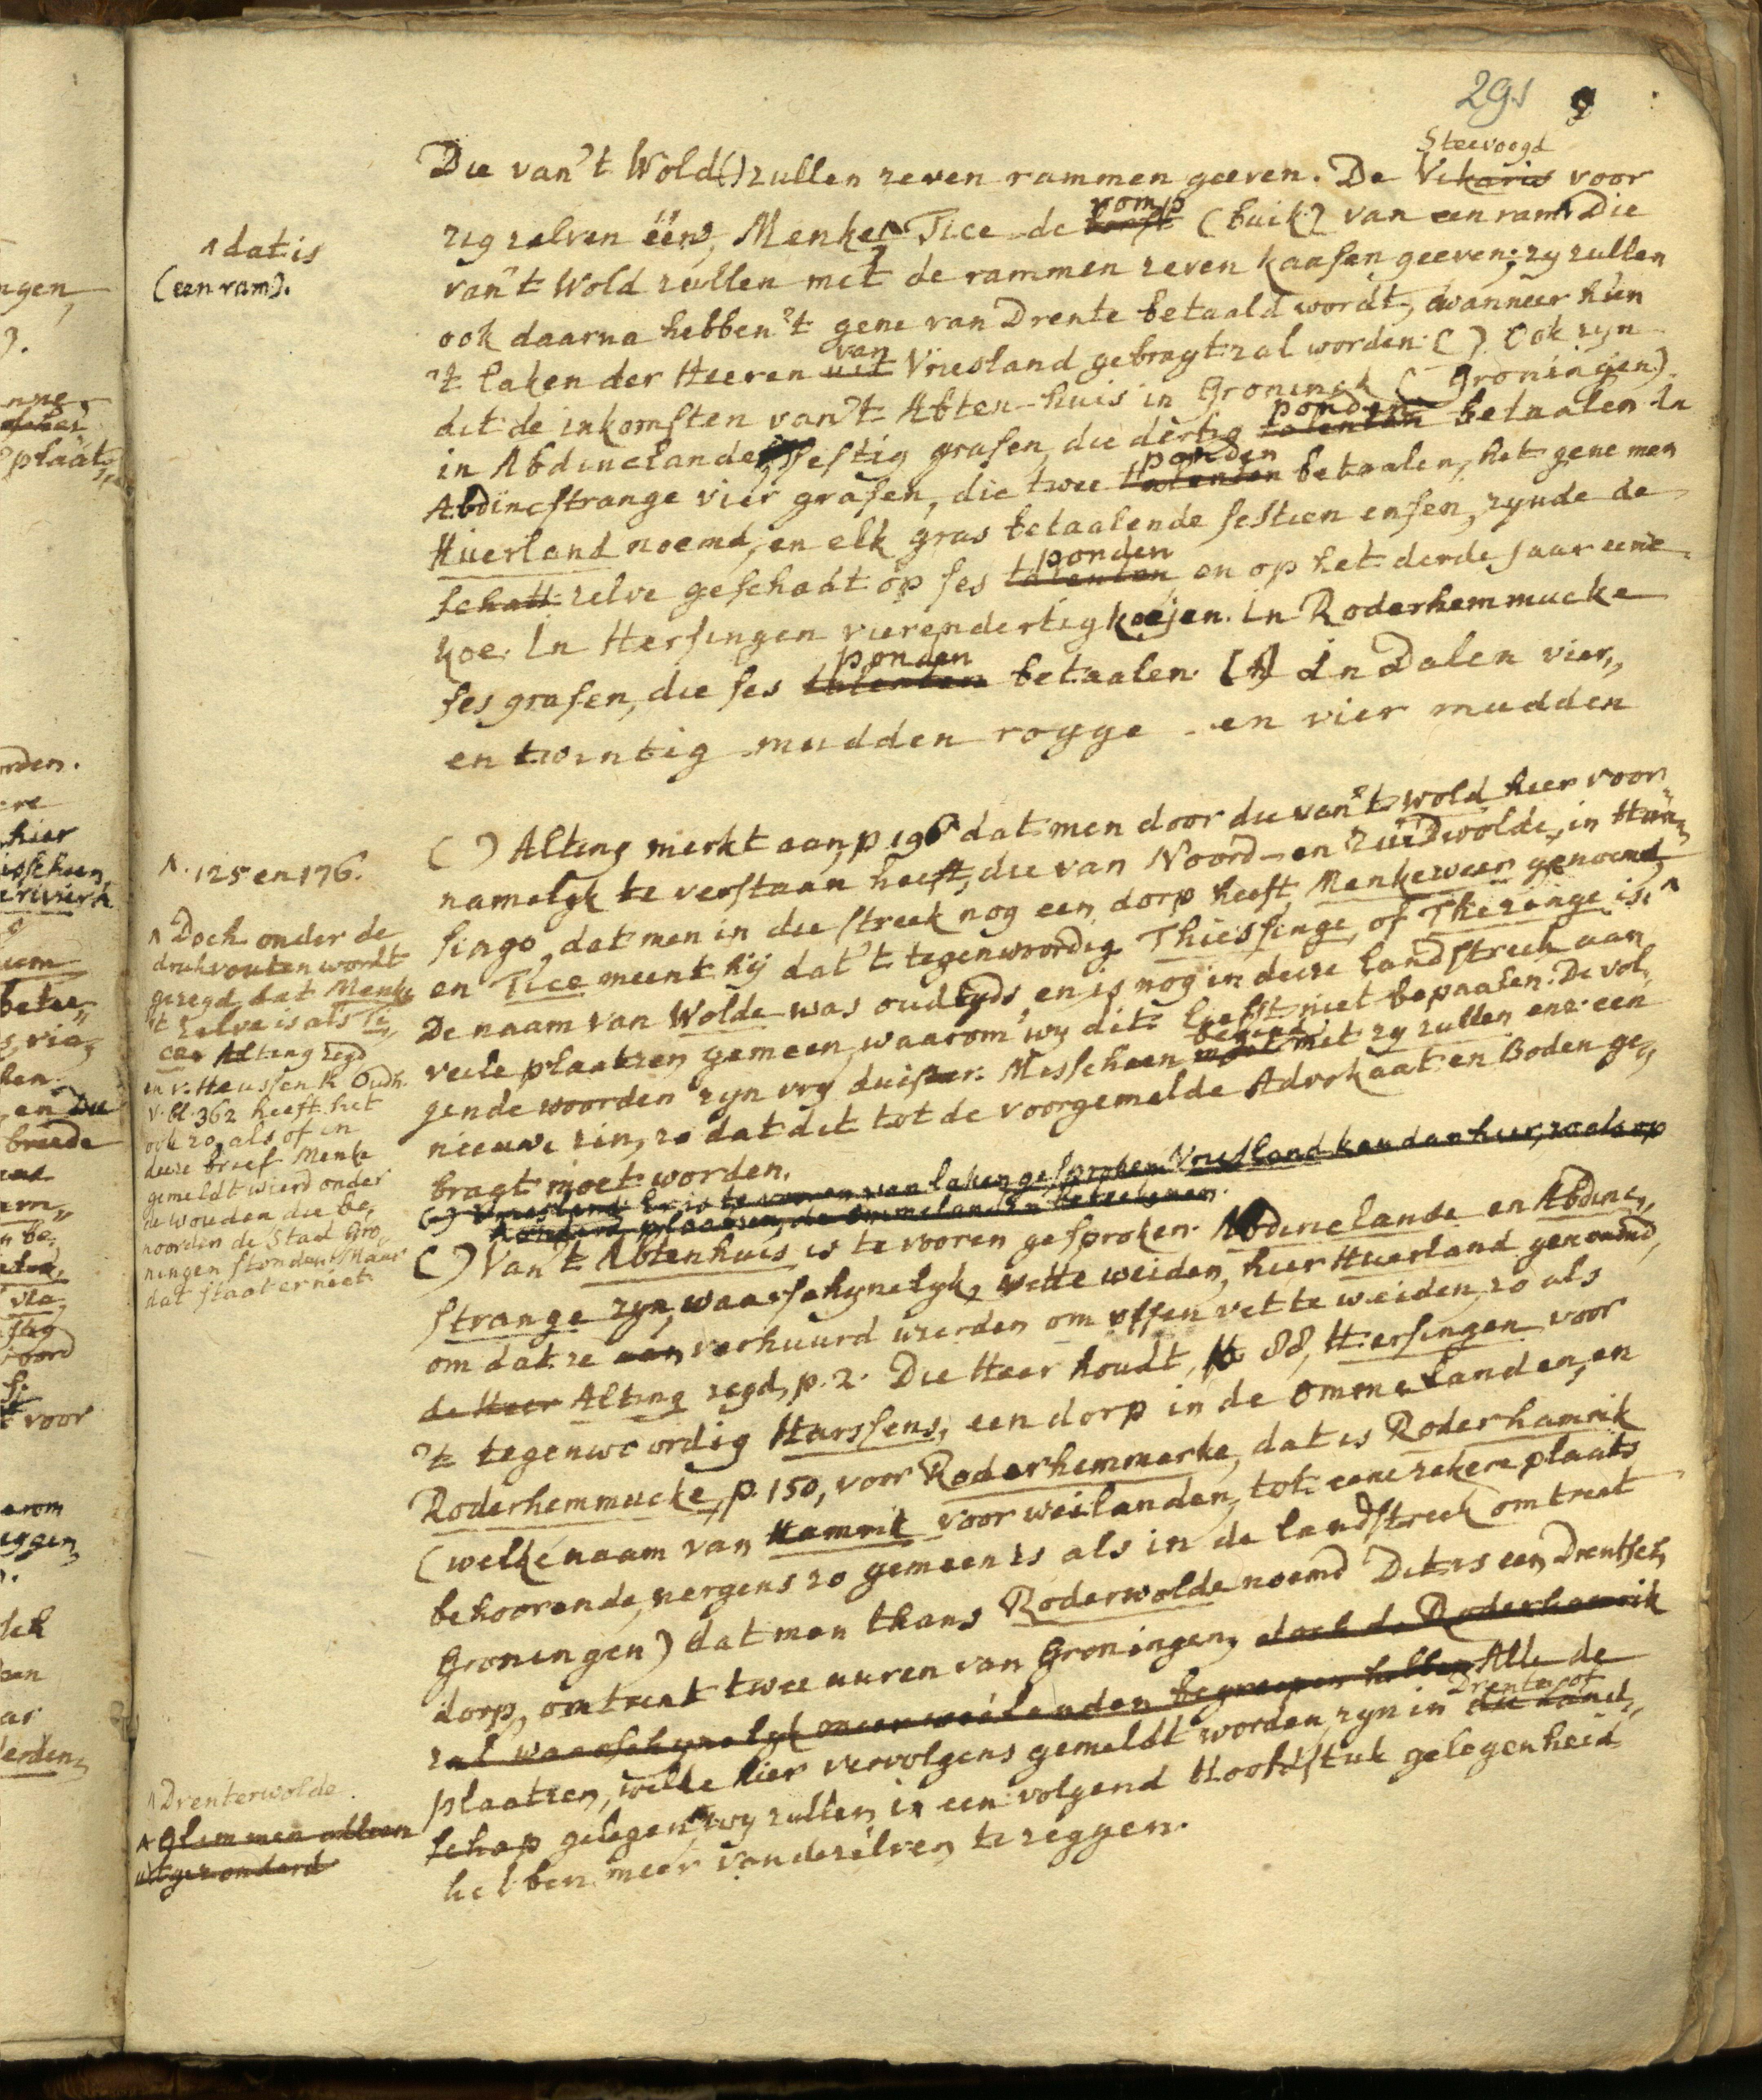 291
Steevoogd
Die van 't Wold() zullen zeven rammen geeven. De Vikaris voor
romp
zig zelven één, Menke^ Tice de borst (buik) van een ram. Die
^ dat is
(een ram).
van 't Wold zullen met de rammen zeven kaasen geeven; zy zullen
ook daarna hebben 't gene van Drente betaald wordt, wanneer hun
van
't laken der Heeren uit Vriesland gebragt zal worden. () Ook zyn
dit de inkomsten van 't Abten-huis in Groninck (Groningen).
ponden
in Abdinclande sestig grasen, die dertig talenten betaalen. In
ponden
Abdincstrange vier grasen, die twee talenten betaalen, het gene men
Huerland noemd, en elk gras betaalende sestien ensen, zynde de
ponden
schatt zelve geschadt op ses talenten en op het derde jaar eene
koe. In Hersingen vierendertig koejen. In Roderhemmucke
ponden
ses grasen, die ses talenten betaalen. () In Dalen vier,,
en twintig mudden rogge en vier mudden
() Alting merkt aan, p. 196^ dat men door die van 't Wold hier voor,,
^. 125 en 176.
namelyk te verstaan heeft, die van Noord- en Zuidwolde, in Hun,,
singo, dat men in die streek nog een dorp heeft, Menkeweer genoemd,
en Tice meent hij dat 't tegenwoordig Thiessinge, of Thezinge is.^
^ Doch onder de
drukvouten wordt
gezegd dat Menke
't zelve is als Ti,,
ce. Alting zegd
en v. Heussen K. Oudh.
V. bl. 362 heeft het
ook zo, als of in
deeze brief Menke
gemeldt wierd onder
de wouden die be,,
noorden de Stad Gro,,
ningen stonden. Maar
dat staat er niet.
De naam van Wolde was oudtyds, en is nog in deeze landstreek aan
veele plaatzen gemeen, waarom wy dit liefst niet bepaalen. De vol,,
begind
gende woorden zyn vry duister. Misscheen moet met zy zullen enz. een
nieuwe zin, zo dat dit tot de voorgemelde Advokaat en Boden ge,,
bragt moet worden.
() Vriesland. Er is te voren van laken gesproken. Vriesland kan dan hier, zo als op
honderd plaatsen, de Ommelanden betekenen.
() Van 't Abtenhuis is te voren gesproken. Abdinclande en Abdinc,,
strange zyn, waarschynelyk, vette weiden, hier Huerland genoemd,
om dat ze aan verhuurd wierden om ossen vet te weiden, zo als
de Heer Alting zegd, p. 2. Die Heer houdt, p. 88, Hersingen voor
't tegenwoordig Harssens, een dorp in de Ommelanden, en
Roderhemmucke, p. 150, voor Roderhemmerke, dat is Roderhamrik
(welke naam van Hamrik voor weilanden, tot eene zekere plaats
behoorende, nergens zo gemeen is als in de landstreek omtrent
Groningen) dat men thans Roderwolde noemd. Dit is een Drentsch
dorp, omtrent twee uuren van Groningen, doch de Roderhamrik
zal waarschynelyk meer weilanden begreepen hebben. Alle de
Drente, of
plaatzen, welke hier vervolgens gemeldt worden, zyn in die land,,
schap gelegen;^ wy zullen in een volgend Hoofdstuk gelegenheid
^ Drenterwolde.
^ Glimmen alleen
uitgezonderd
hebben meer van dezelven te zeggen.